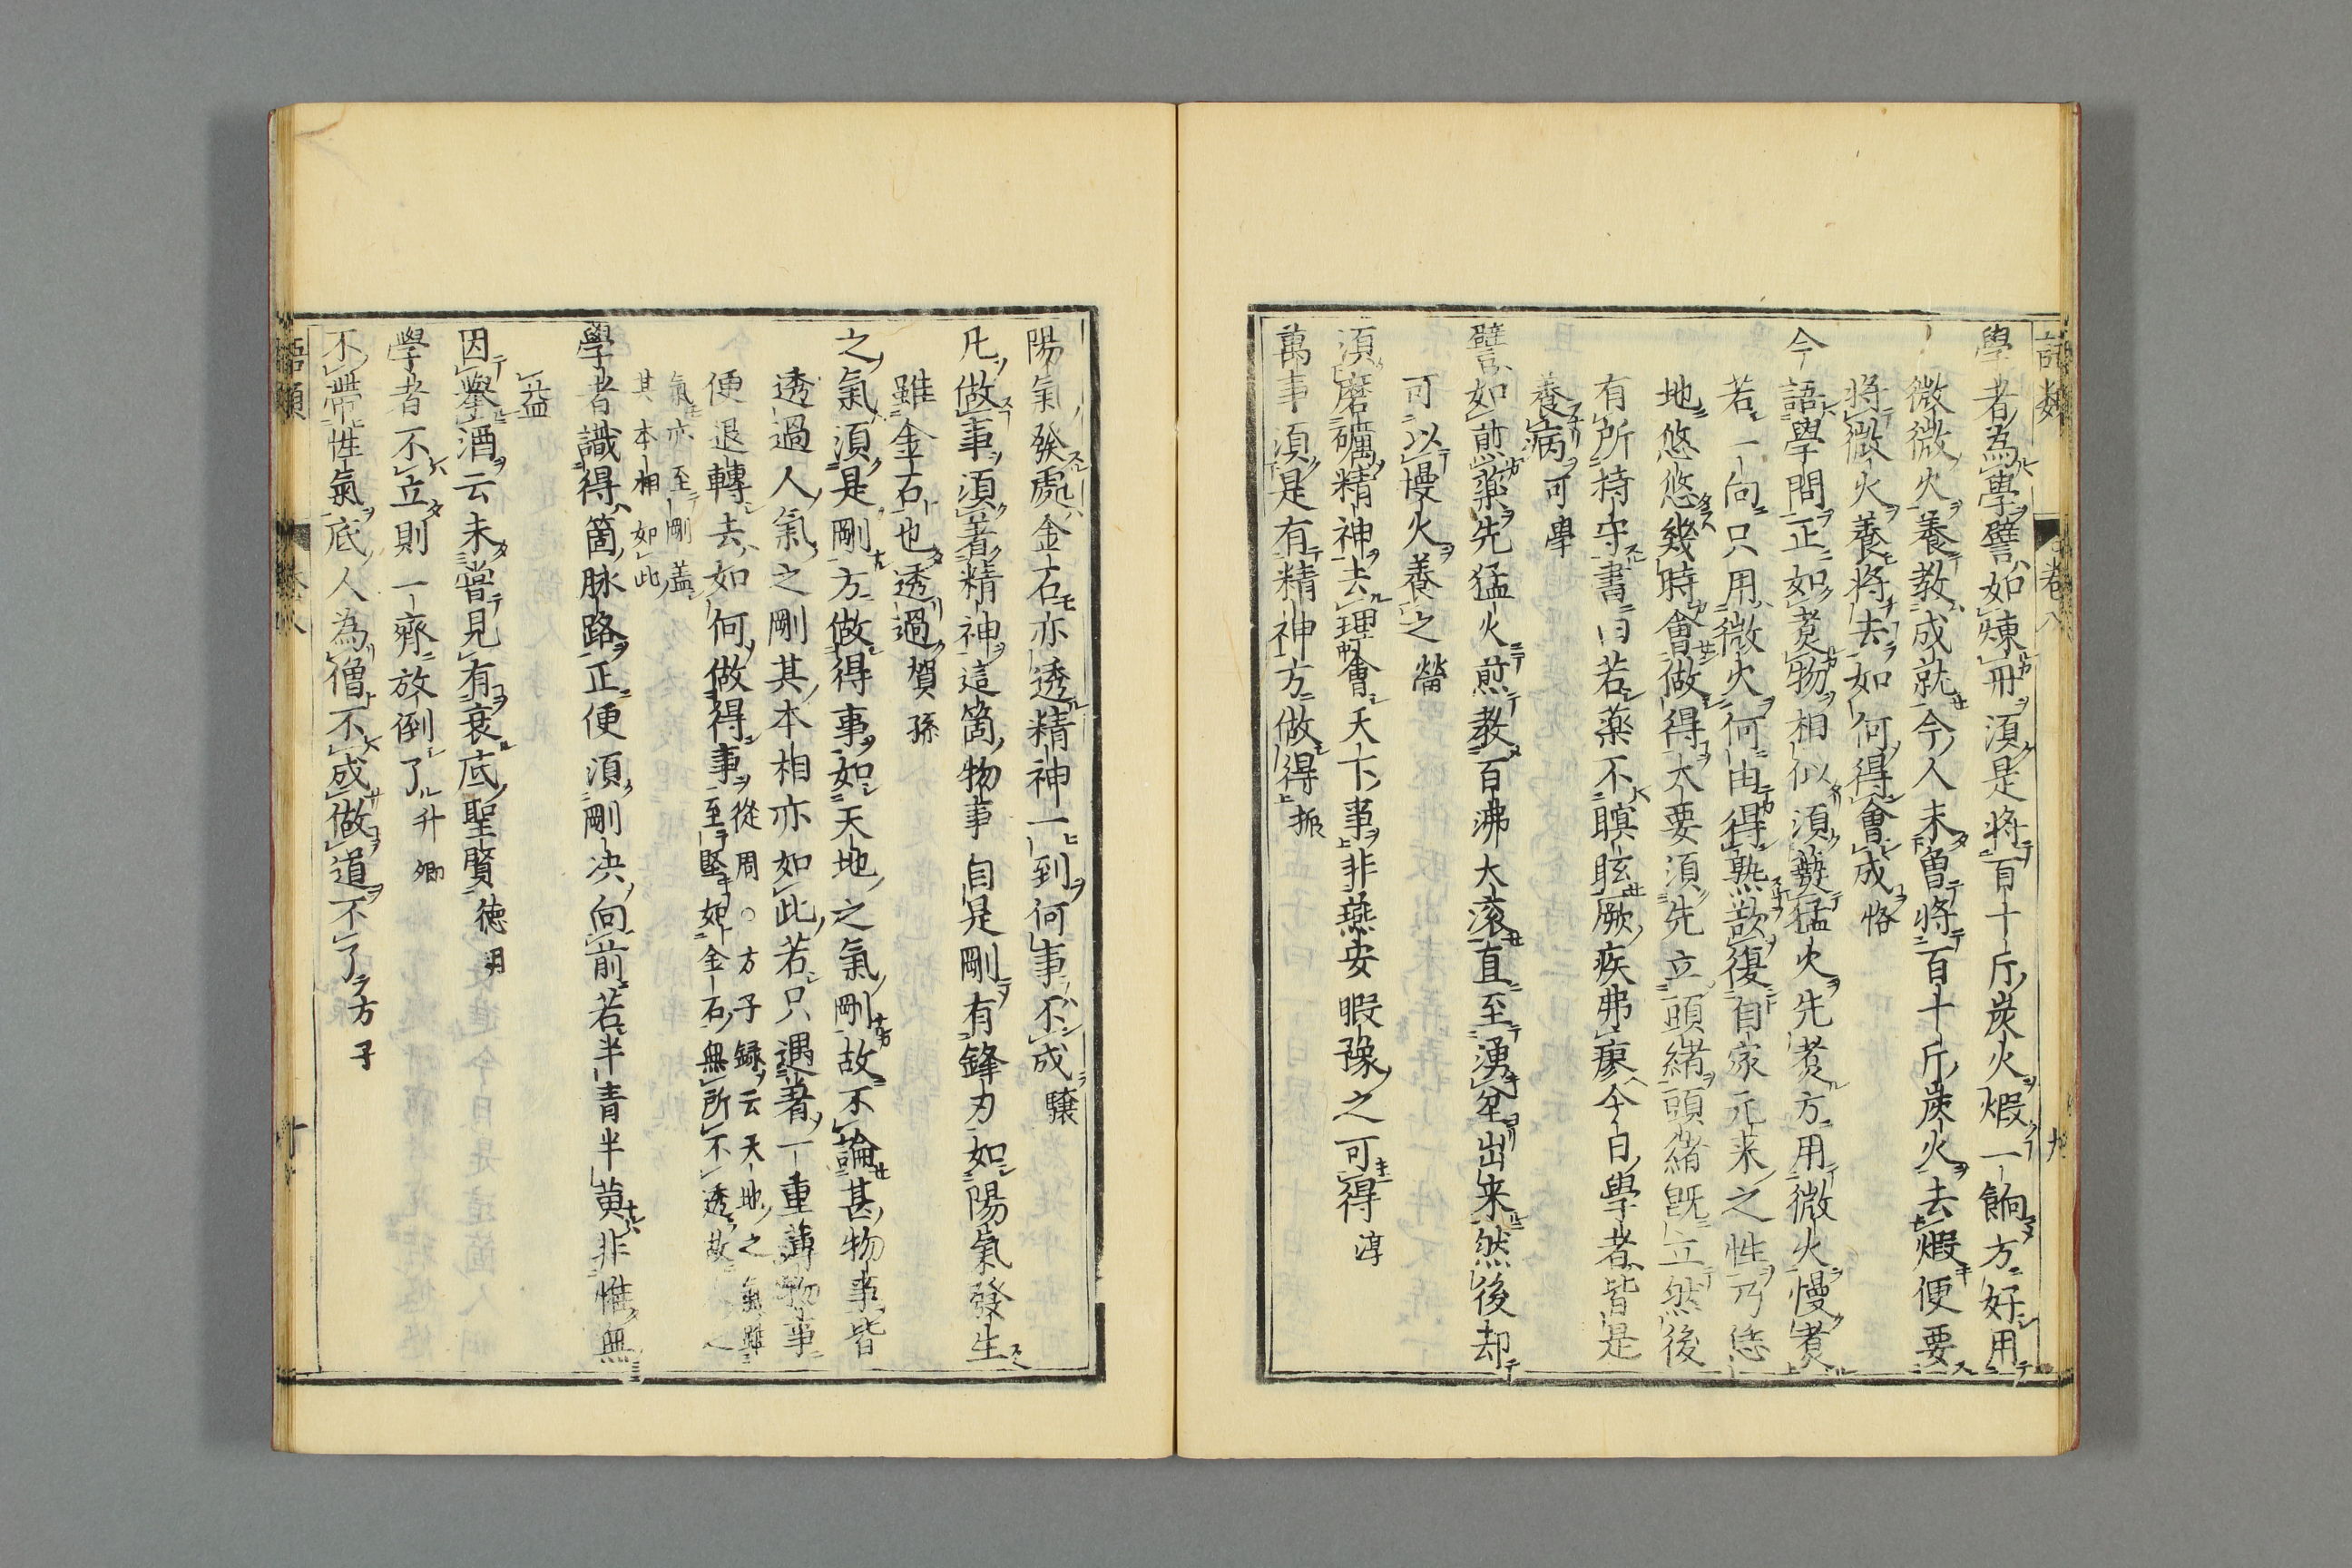 語類 卷八 九
學者為學譬如煉丹須是將百十斤炭火煅一餉方好用
微微火養教成就今人未曽將百十斤炭火去煅便要
將微火養將去如何得會成 恪
今語學問正如煑物相似須爇猛火先煑方用微火慢煑
若一向只用微火何由得熟欲復自家元来之性乃恁
地悠悠幾時會做得大要須先立頭緒頭緒旣立然後
有所持守書曰若藥不瞑眩厥疾弗瘳今日學者皆是
養病 可學
譬如煎藥先猛火煎教百沸大滚直至湧坌出来然後却
可以慢火養之 𦺋
須磨礪精神去理會天下事非燕安暇豫之可得 淳
萬事須是有精神方做得 振
陽氣發處金石亦透精神一到何事不成 驤
凡做事須著精神這箇物事自是剛有鋒刃如陽氣發生
雖金石也透過 賀孫
之氣須是剛方做得事如天地之氣剛故不論甚物事皆
透過人氣之剛其本相亦如此若只遇著一重薄物事
便退轉去如何做得事 從周○方子録云天地之氣雖
至堅如金石無所不透故人之
氣亦至剛盖
其本相如此
學者識得箇脉路正便須剛决向前若半青半黄非惟無
益
因舉酒云未嘗見有衰底聖賢 德明
學者不立則一齊放倒了 升卿
不帶性氣底人為僧不成做道不了 方子
語類 卷八 十